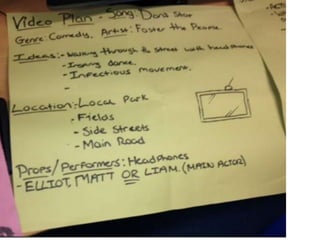 Video Plan - Song: Don't Stop
Genre: Comedy, Artist: Foster the People.
Ideas:- Walking through the street with headphones
- Ironing dance.
- Infectious movement.
-
Location:- Local Park
- Fields
- Side Streets
- Main Road
Props/Performers: Headphones
- ELLIOT, MATT OR LIAM. (MAIN ACTOR)